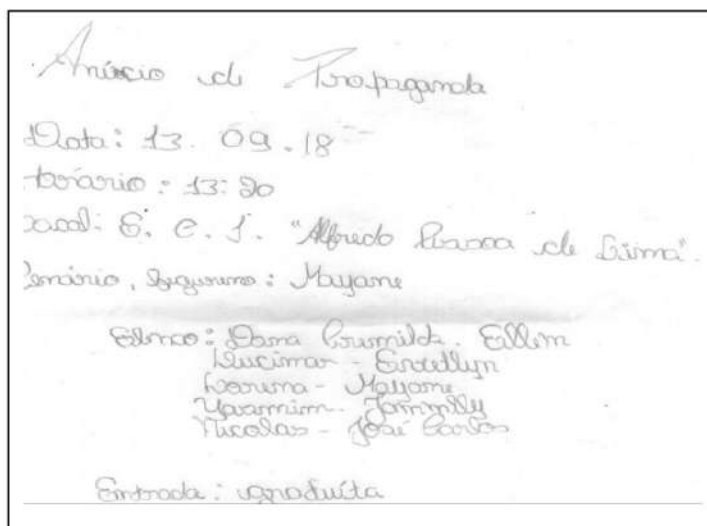 Anúncio de Propaganda
Data: 13. 09. 18
horário: 13:20
Local: E. C. I. "Alfredo Pessoa de Lima".
Cenário, figurino: Mayane
Elenco: Dona Crumilda. Ellem
Lucimar - Enrellyn
Lorena - Mayane
Yasmim - Jamilly
Nicolas - José Carlos
Entrada: gratuita